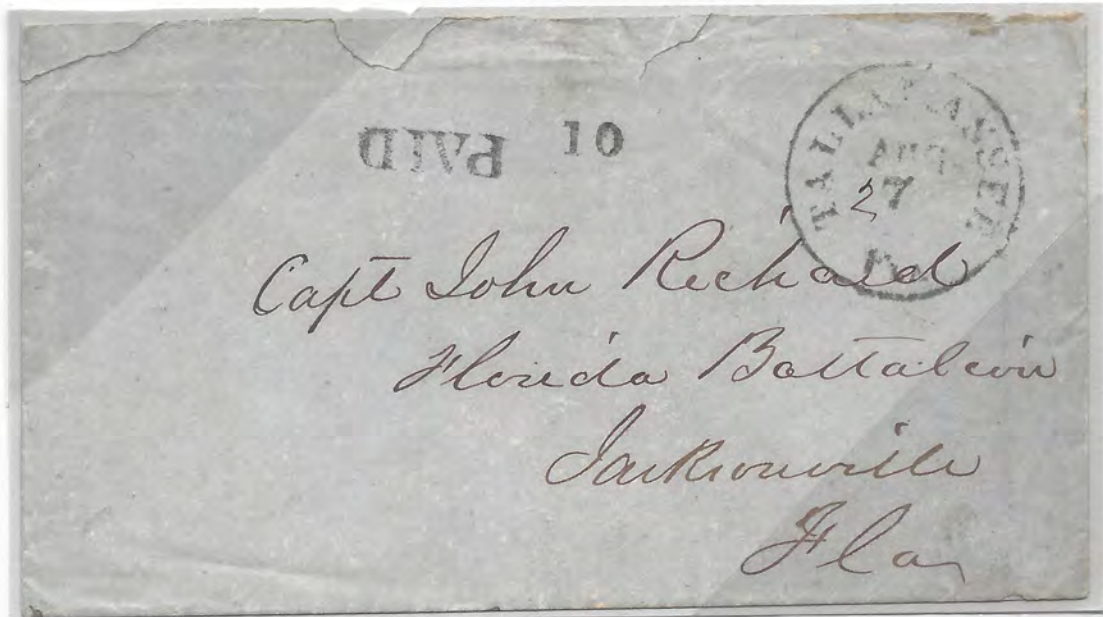 PAID 10
TALLAHASSEE
AUG
27
Capt John Richard
Florida Battaleion
Jacksonville
Fla